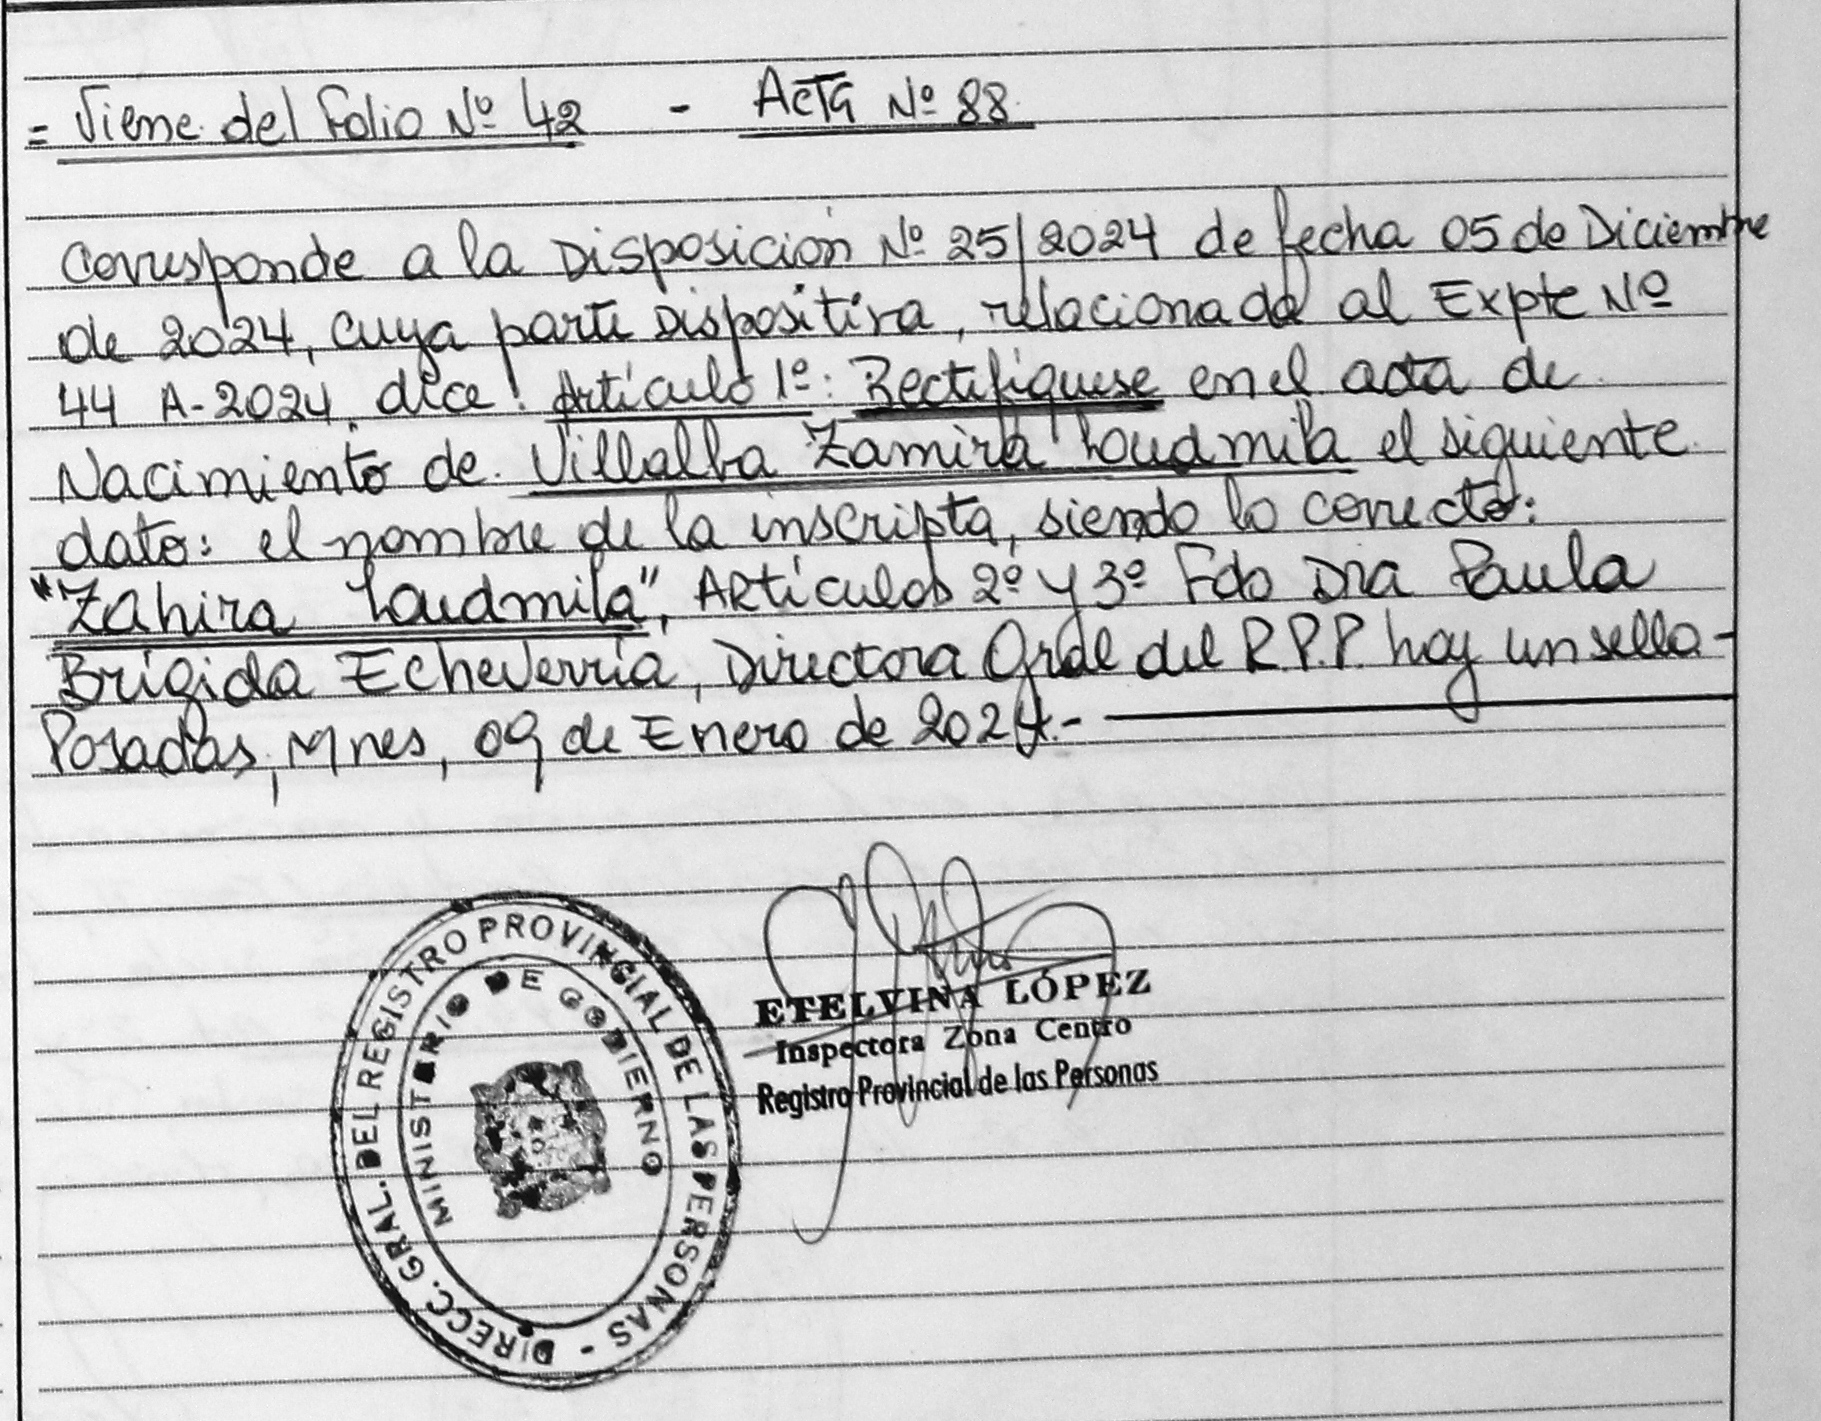 = Viene del Folio Nº 42 - Acta Nº 88.
Corresponde a la Disposición Nº 25/2024 de fecha 05 de Diciembre
de 2024, cuya parte Dispositiva, relacionada al Expte Nº
44 A-2024, dice: Artículo 1º: Rectifíquese en el acta de
Nacimiento de Villalba Zamira Loudmila el siguiente
dato: el nombre de la inscripta, siendo lo correcto:
"Zahira Loudmila", Artículos 2º y 3º Fdo Dra Paula
Brígida Echeverría, Directora Gral del R.P.P. hay un sello-
Posadas, Mnes, 09 de Enero de 2024.-
DIRECC. GRAL. DEL REGISTRO PROVINCIAL DE LAS PERSONAS -
MINISTERIO DE GOBIERNO
ETELVINA LÓPEZ
Inspectora Zona Centro
Registro Provincial de las Personas